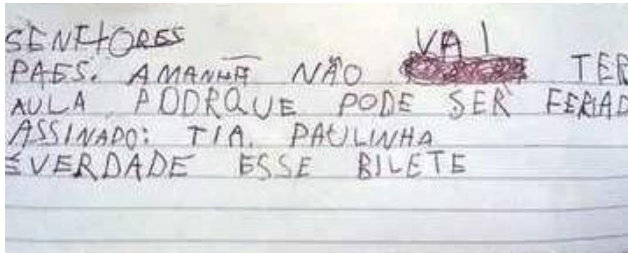 SENHORES
PAES. AMANHÃ NÃO VAI TER
AULA PODRQUE PODE SER FERIAD
ASSINADO: TIA. PAULINHA
EVERDADE ESSE BILETE